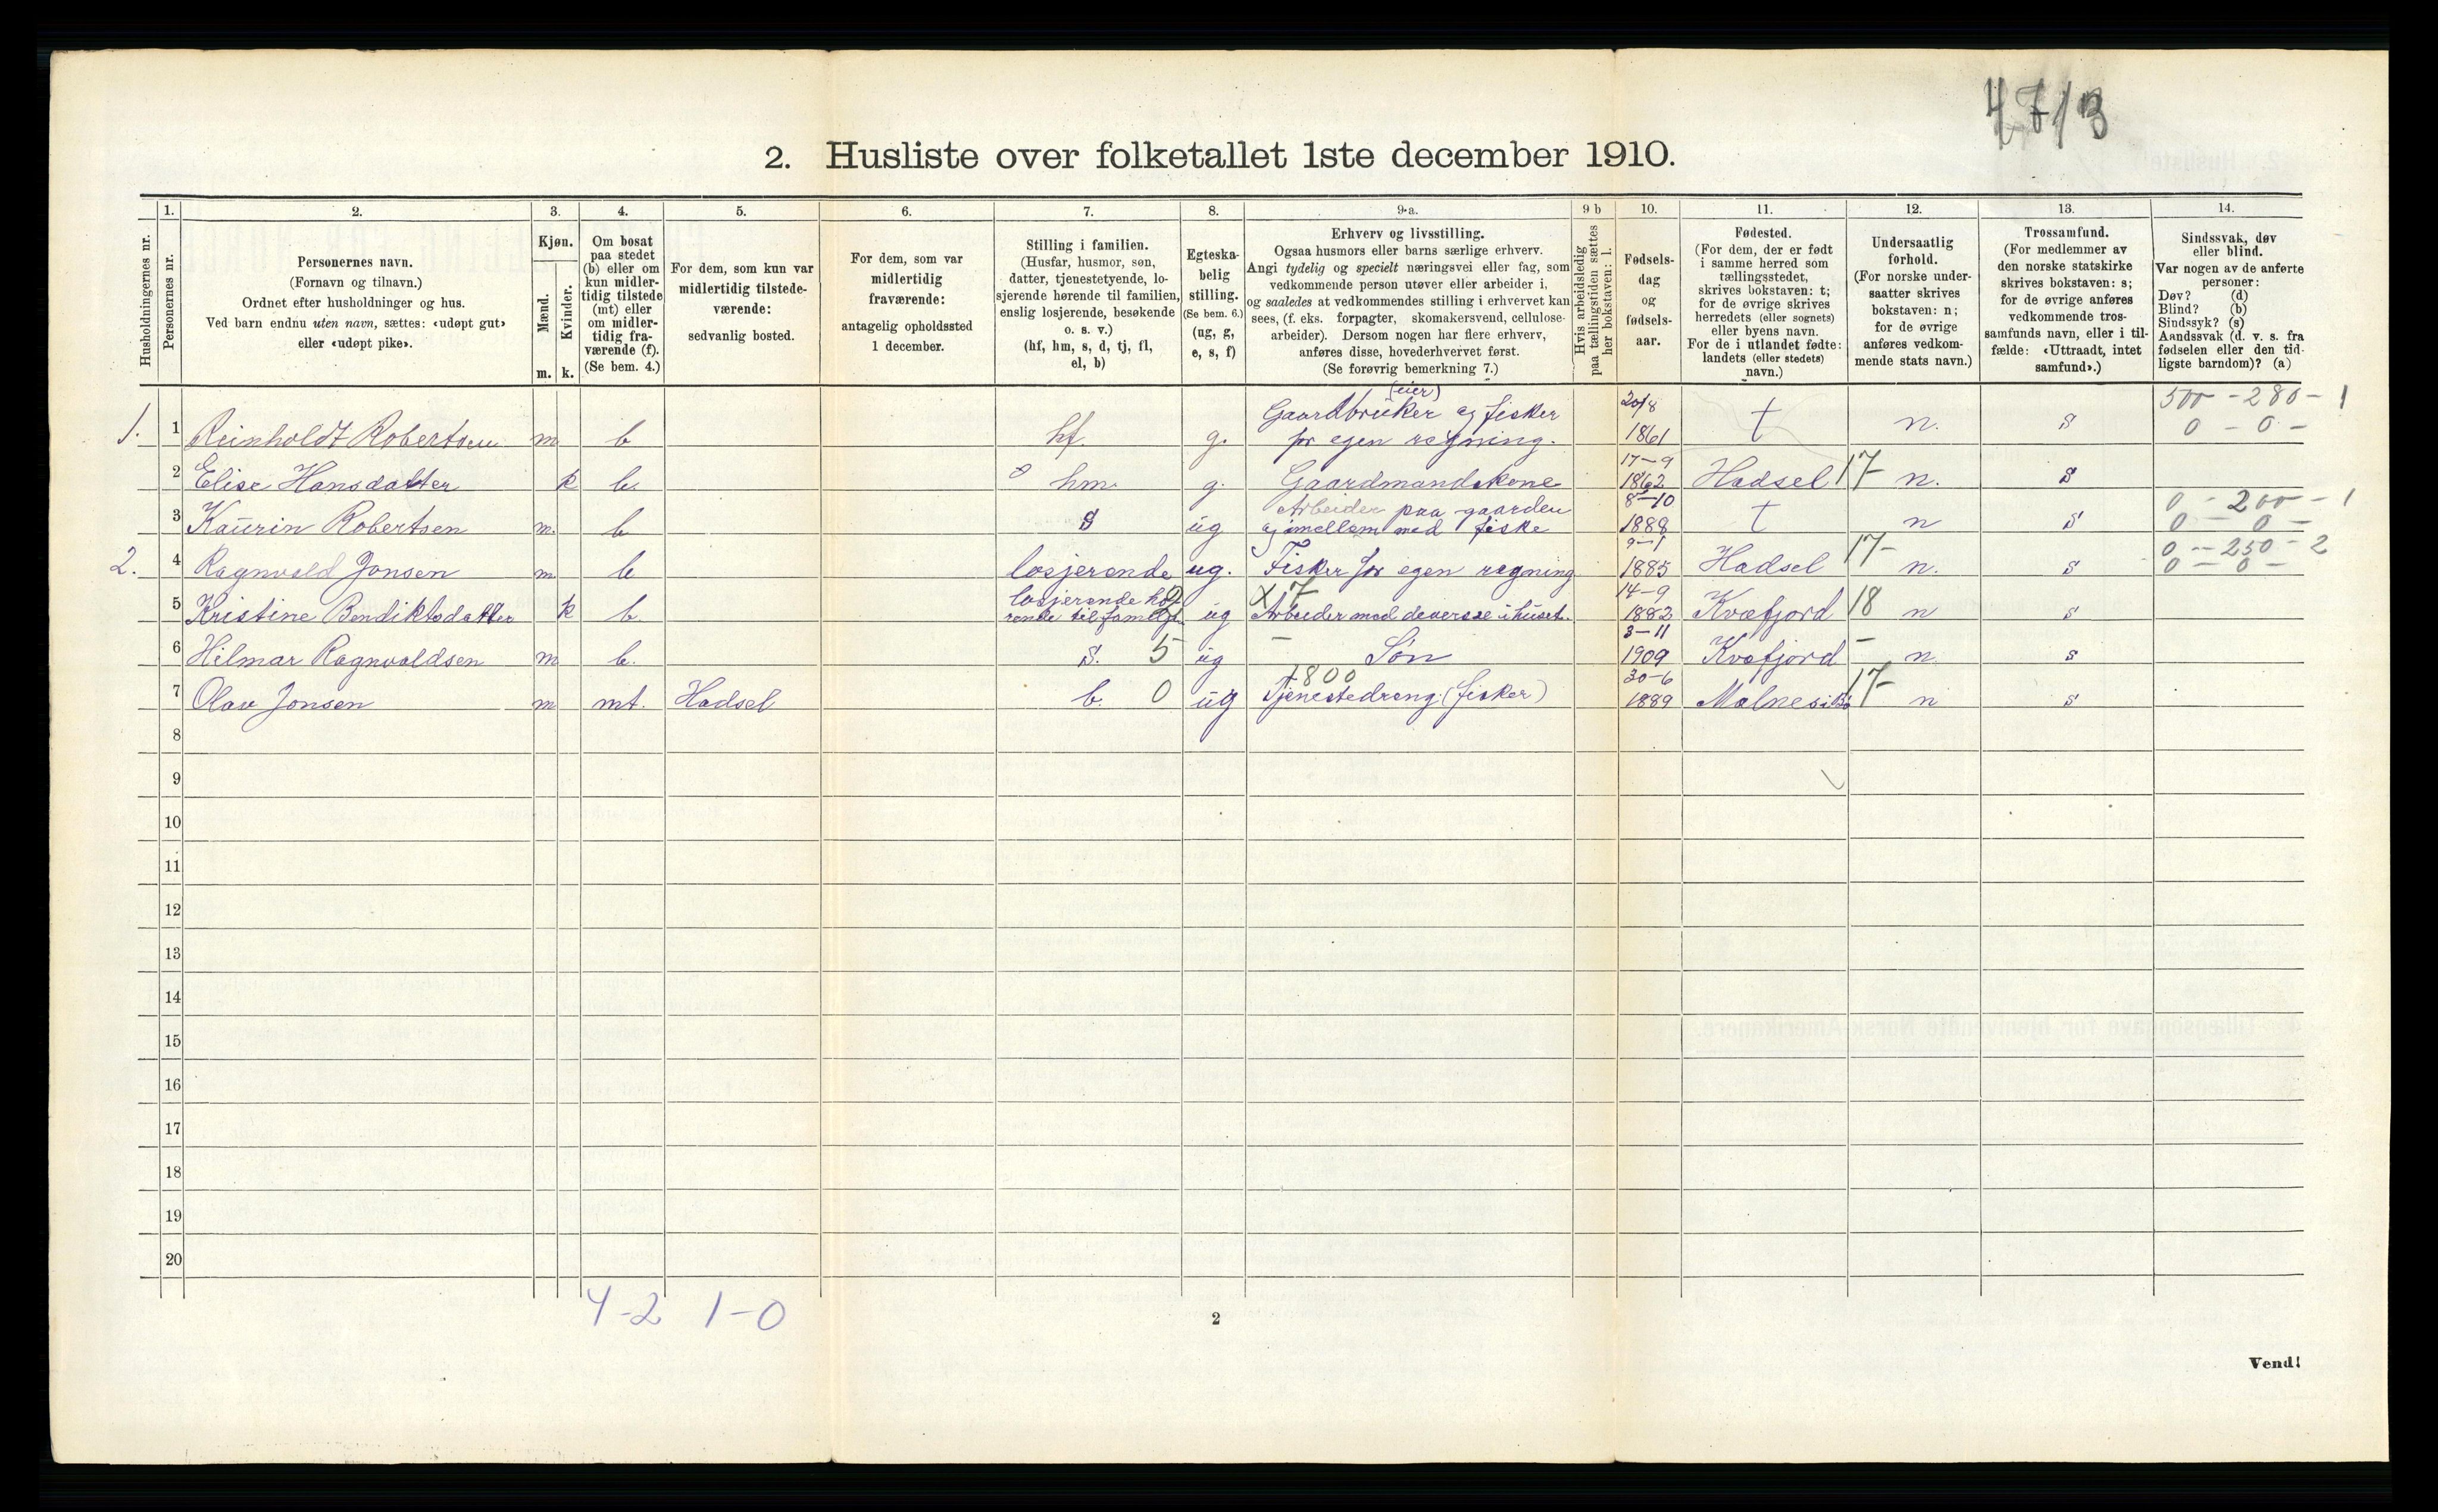 4713
2. Husliste over folketallet 1ste december 1910.
Husholdningernes nr.
1. Personernes nr.
2. Personernes navn.
(Fornavn og tilnavn.)
Ordnet efter husholdninger og hus.
Ved barn endnu uten navn, sættes: «udøpt gut»
eller «udøpt pike».
3. Kjøn.
Mænd. Kvinder.
m. k.
4. Om bosat
paa stedet
(b) eller om
kun midler-
tidig tilstede
(mt) eller
om midler-
tidig fra-
værende (f).
(Se bem. 4.)
5. For dem, som kun var
midlertidig tilstede-
værende:
sedvanlig bosted.
6. For dem, som var
midlertidig
fraværende:
antagelig opholdssted
1 december.
7. Stilling i familien.
(Husfar, husmor, søn,
datter, tjenestetyende, lo-
sjerende hørende til familien,
enslig losjerende, besøkende
o. s. v.)
(hf, hm, s, d, tj, fl,
el, b)
8. Egteska-
belig
stilling.
(Se bem. 6.)
(ug, g,
e, s, f)
9 a. Erhverv og livsstilling.
Ogsaa husmors eller barns særlige erhverv.
Angi tydelig og specielt næringsvei eller fag, som
vedkommende person utøver eller arbeider i,
og saaledes at vedkommendes stilling i erhvervet kan
sees, (f. eks. forpagter, skomakersvend, cellulose-
arbeider). Dersom nogen har flere erhverv,
anføres disse, hovederhvervet først.
(Se forøvrig bemerkning 7.)
9 b Hvis arbeidsledig
paa tællingstiden sættes
her bokstaven: l.
10. Fødsels-
dag
og
fødsels-
aar.
11. Fødested.
(For dem, der er født
i samme herred som
tællingsstedet,
skrives bokstaven: t;
for de øvrige skrives
herredets (eller sognets)
eller byens navn.
For de i utlandet fødte:
landets (eller stedets)
navn.)
12. Undersaatlig
forhold.
(For norske under-
saatter skrives
bokstaven: n;
for de øvrige
anføres vedkom-
mende stats navn.)
13. Trossamfund.
(For medlemmer av
den norske statskirke
skrives bokstaven: s;
for de øvrige anføres
vedkommende tros-
samfunds navn, eller i til-
fælde: «Uttraadt, intet
samfund».)
14. Sindssvak, døv
eller blind.
Var nogen av de anførte
personer:
Døv? (d)
Blind? (b)
Sindssyk? (s)
Aandssvak (d. v. s. fra
fødselen eller den tid-
ligste barndom)? (a)
(eier) 500 - 280 - 1
Gaardbruker og fisker 20/8
1. 1 Reinholdt Robertsen m b hf. g. for egen regning. 1861 t n. s 0 - 0 -
17-9
2 Elise Hansdatter k b. hm. g. Gaardmandskone 1862 Hadsel 17 n. s
Arbeider paa gaarden 8-10 0 - 200 - 1
3 Kaurin Robertsen m. b s ug og imellem med fiske 1888 t n s 0 - 0 -
9-1 0 - 250 - 2
2. 4 Ragnvald Jonsen m b losjerende ug. Fisker for egen regning 1885 Hadsel 17- n. s 0 - 0 -
losjerende hø X 7 14-9
5 Kristine Bendiktsdatter k b. rende til familje ug Arbeider med deverse i huset. 1882 Kvæfjord 18 n s
3-11
6 Hilmar Ragnvaldsen m b. s. 5 ug - Søn 1909 Kvæfjord - n s
1800 30-6
7 Olav Jonsen m mt. Hadsel b. 0 ug Tjenestedreng (fisker) 1889 Malnes i Bø 17- n s
8
9
10
11
12
13
14
15
16
17
18
19
20
4-2 1-0
2
Vend!